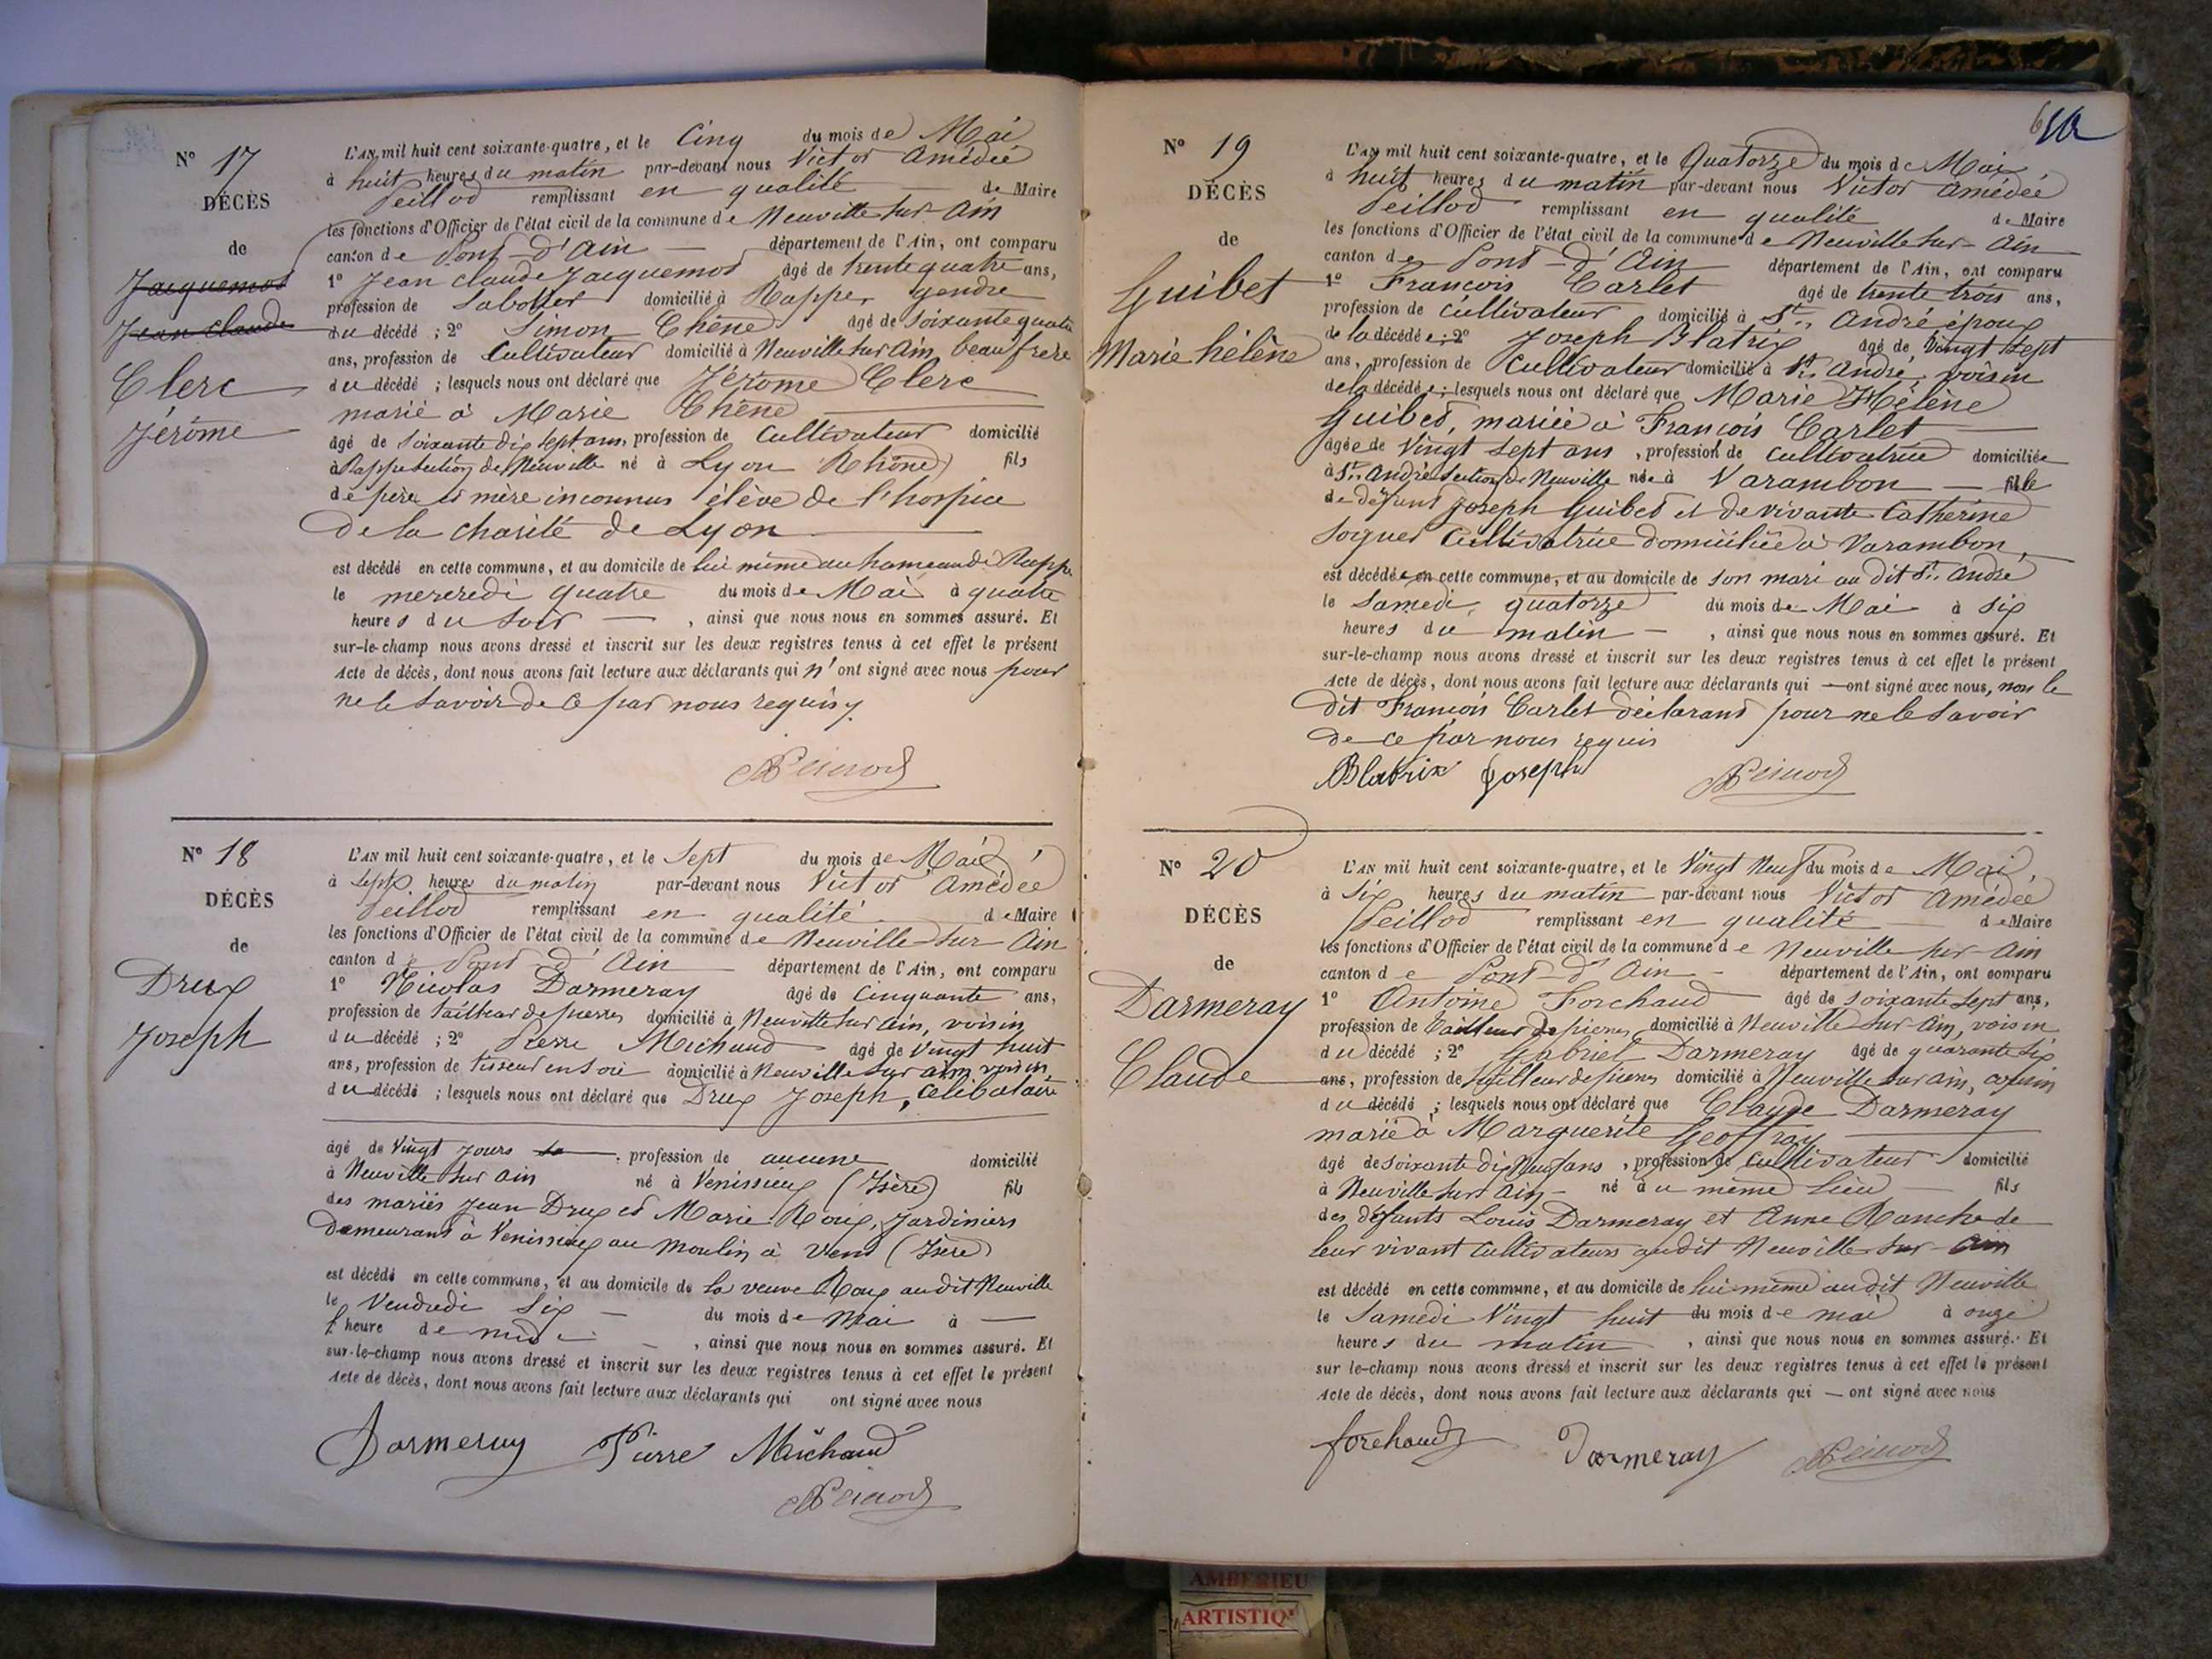 N° 17
DÉCÈS
de
Jacquemod
Jean Claude
Clerc
Jérôme
L'AN mil huit cent soixante-quatre, et le Cinq du mois de Mai
à huit heures du matin par-devant nous Victor Amédée
Peillod remplissant en qualité de Maire
les fonctions d'Officier de l'état civil de la commune de Neuville sur Ain
canton de Pont-d'Ain département de l'Ain, ont comparu
1° Jean Claude Jacquemod âgé de trente quatre ans,
profession de Sabotier domicilié à Rappe, gendre
du décédé ; 2° Simon Chêne âgé de soixante quatre
ans, profession de Cultivateur domicilié à Neuville sur Ain, beau frère
du décédé ; lesquels nous ont déclaré que Jérôme Clerc
marié à Marie Chêne
âgé de soixante dix sept ans, profession de Cultivateur domicilié
à Rappe section de Neuville né à Lyon (Rhône) fils
de père et mère inconnus élève de l'hospice
de la charité de Lyon
est décédé en cette commune, et au domicile de lui même au hameau de Rappe
le mercredi quatre du mois de Mai à quatre
heures du soir , ainsi que nous nous en sommes assuré. Et
sur-le-champ nous avons dressé et inscrit sur les deux registres tenus à cet effet le présent
Acte de décès, dont nous avons fait lecture aux déclarants qui n'ont signé avec nous pour
ne le savoir de ce par nous requis
N° 18
DÉCÈS
de
Drux
Joseph
L'AN mil huit cent soixante-quatre, et le Sept du mois de Mai
à sept heures du matin par-devant nous Victor Amédée
Peillod remplissant en qualité de Maire
les fonctions d'Officier de l'état civil de la commune de Neuville-sur-Ain
canton de Pont-d'Ain département de l'Ain, ont comparu
1° Nicolas Darmeray âgé de Cinquante ans,
profession de tailleur de pierres domicilié à Neuville sur Ain, voisin
du décédé ; 2° Pierre Michaud âgé de vingt huit
ans, profession de tisseur en soie domicilié à Neuville sur ain voisin
du décédé ; lesquels nous ont déclaré que Drux Joseph, célibataire
âgé de Vingt jours profession de aucune domicilié
à Neuville sur Ain né à Vénissieux (Isère) fils
des mariés Jean Drux et Marie Roux, Jardiniers
Demeurant à Vénissieux au Moulin à Vent (Isère)
est décédé en cette commune, et au domicile de la veuve Roux audit Neuville
le Vendredi Six du mois de Mai à
l'heure de midi , ainsi que nous nous en sommes assuré. Et
sur-le-champ nous avons dressé et inscrit sur les deux registres tenus à cet effet le présent
Acte de décès, dont nous avons fait lecture aux déclarants qui ont signé avec nous
Darmeray Pierre Michaud
N° 19
DÉCÈS
de
Guibet
Marie hélène
L'AN mil huit cent soixante-quatre, et le Quatorze du mois de Mai
à huit heures du matin par-devant nous Victor Amédée
Peillod remplissant en qualité de Maire
les fonctions d'Officier de l'état civil de la commune de Neuville sur-Ain
canton de Pont-d'Ain département de l'Ain, ont comparu
1° François Carlet âgé de trente trois ans,
profession de Cultivateur domicilié à St. André époux
de la décédée ; 2° Joseph Blatrix âgé de Vingt sept
ans, profession de Cultivateur domicilié à St. André, voisin
de la décédée ; lesquels nous ont déclaré que Marie Hélène
Guibet, mariée à François Carlet
âgée de Vingt sept ans , profession de Cultivatrice domiciliée
à St. André section de Neuville née à Varambon fille
de défunt Joseph Guibet et de vivante Catherine
Cultivatrice domiciliée à Varambon,
est décédée en cette commune, et au domicile de son mari au dit St. André
le Samedi, quatorze du mois de Mai à Six
heures du matin , ainsi que nous nous en sommes assuré. Et
sur-le-champ nous avons dressé et inscrit sur les deux registres tenus à cet effet le présent
Acte de décès, dont nous avons fait lecture aux déclarants qui ont signé avec nous, non le
dit François Carlet déclarant pour ne le savoir
de ce par nous requis
Blatrix Joseph
N° 20
DÉCÈS
de
Darmeray
Claude
L'AN mil huit cent soixante-quatre, et le Vingt Neuf du mois de Mai,
à Six heures du matin par-devant nous Victor Amédée
Peillod remplissant en qualité de Maire
les fonctions d'Officier de l'état civil de la commune de Neuville sur-Ain
canton de Pont-d'Ain département de l'Ain, ont comparu
1° Antoine Forchaud âgé de soixante sept ans,
profession de tailleur de pierres domicilié à Neuville sur-Ain, voisin
du décédé ; 2° Gabriel Darmeray âgé de quarante six
ans, profession de tailleur de pierres domicilié à Neuville sur ain, cousin
du décédé ; lesquels nous ont déclaré que Claude Darmeray
marié à Marguerite Geoffray
âgé de soixante dix Neuf ans , profession de Cultivateur domicilié
à Neuville sur Ain né au même lieu fils
des défunts Louis Darmeray et Anne Ranche de
leur vivant cultivateurs audit Neuville sur-Ain
est décédé en cette commune, et au domicile de lui même audit Neuville
le Samedi Vingt huit du mois de mai à onze
heures du matin , ainsi que nous nous en sommes assuré. Et
sur le-champ nous avons dressé et inscrit sur les deux registres tenus à cet effet le présent
Acte de décès, dont nous avons fait lecture aux déclarants qui ont signé avec nous
forchaud Darmeray
AMBERIEU
ARTISTIQ